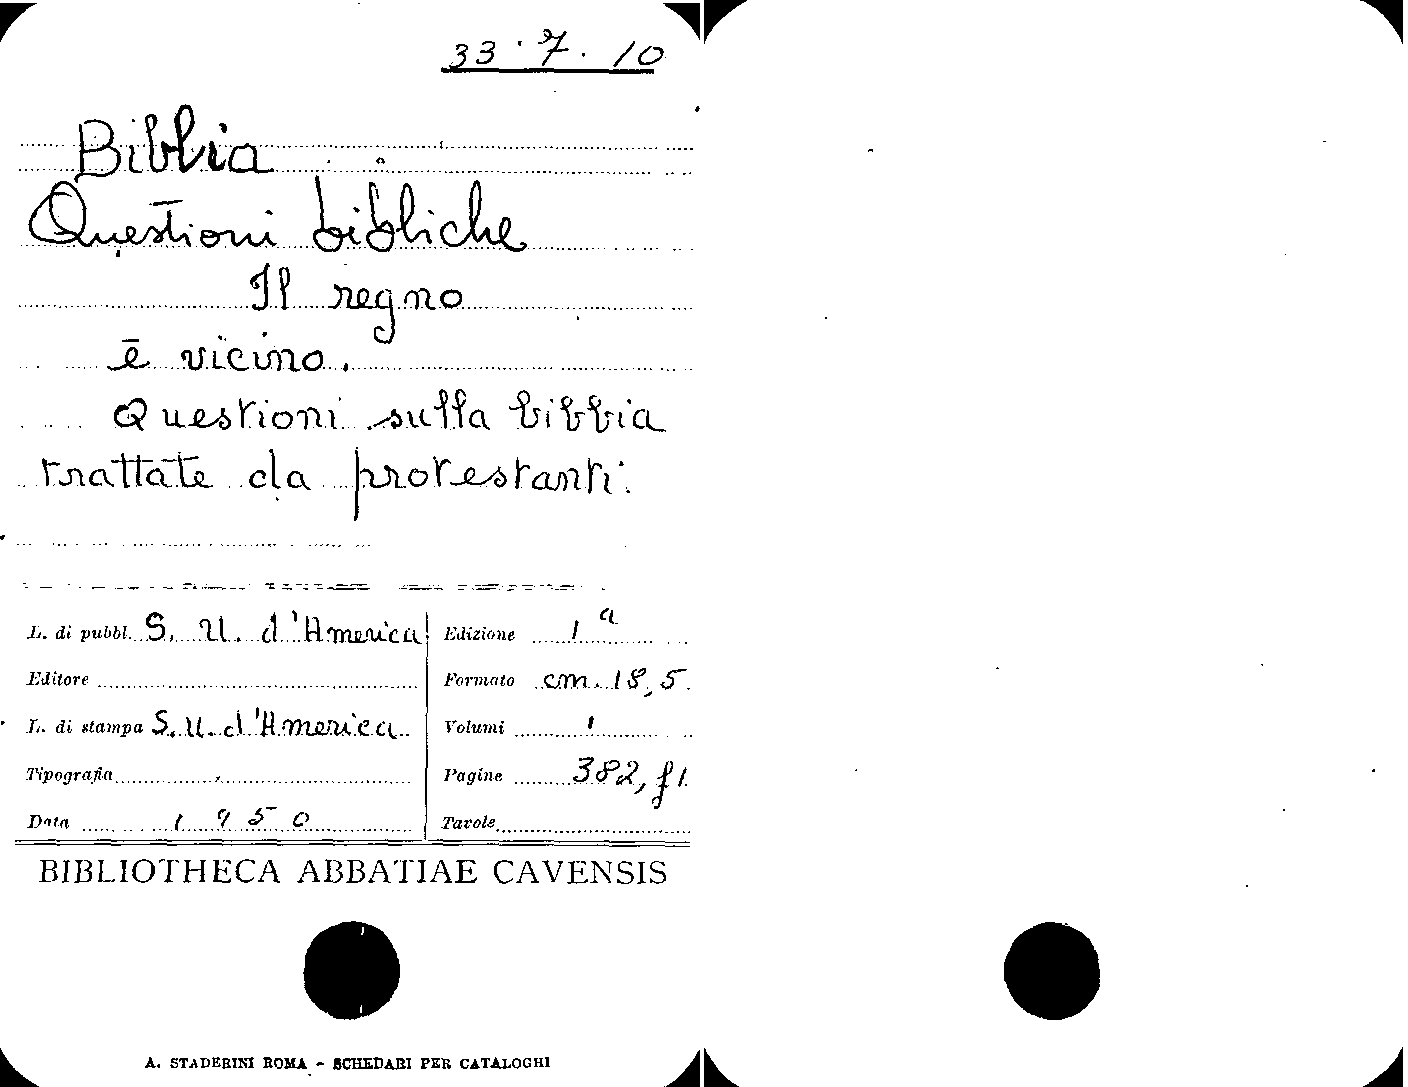 33.7.10
Biblia
Questioni bibliche
Il regno
è vicino.
Questioni sulla bibbia
trattate da protestanti.
L. di pubbl. S. U. d'America
Editore
L. di stampa S. U. d'America
Tipografia
Data 1950
Edizione 1ª
Formato cm. 18,5
Volumi 1
Pagine 382, f1.
Tavole
BIBLIOTHECA ABBATIAE CAVENSIS
A. STADERINI ROMA - SCHEDARI PER CATALOGHI